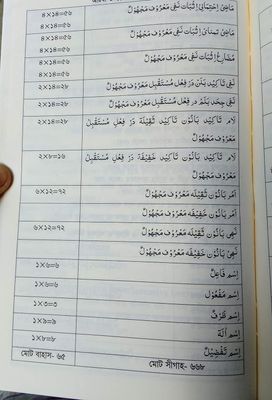 ৪×১৪=৫৬
مَاضِیْ اِحْتِمَالِیْ اِثْبَات نَفِیْ مَعْرُوْف مَجْهُوْلْ
৪×১৪=৫৬
৪×১৪=৫৬
مَاضِیْ تَمَنَّائِیْ اِثْبَات نَفِیْ مَعْرُوْف مَجْهُوْلْ
৪×১৪=৫৬
مُضَارِعْ اِثْبَات نَفِیْ مَعْرُوْف مَجْهُوْلْ
৪×১৪=৫৬
২×১৪=২৮
نَفِیْ تَاكِیْد بَلَنْ دَرْ فِعْل مُسْتَقْبِلْ مَعْرُوْف مَجْهُوْلْ
২×১৪=২৮
نَفِیْ جَحَدْ بَلَمْ دَرْ فِعْل مُسْتَقْبِلْ مَعْرُوْف مَجْهُوْلْ
২×১৪=২৮
لَامْ تَاكِیْد بَانُوْن تَاكِیْد ثَقِیْلَهْ دَرْ فِعْل مُسْتَقْبِلْ
مَعْرُوْف مَجْهُوْلْ
২×৮=১৬
لَامْ تَاكِیْد بَانُوْن تَاكِیْد خَفِیْفَهْ دَرْ فِعْل مُسْتَقْبِلْ
مَعْرُوْف مَجْهُوْلْ
৬×১২=৭২
اَمَرْ بَانُوْن ثَقِیْلَهْ مَعْرُوْف مَجْهُوْلْ
اَمَرْ بَانُوْن خَفِیْفَهْ مَعْرُوْف مَجْهُوْلْ
৬×১২=৭২
نَهِیْ بَانُوْن ثَقِیْلَهْ مَعْرُوْف مَجْهُوْلْ
نَهِیْ بَانُوْن خَفِیْفَهْ مَعْرُوْف مَجْهُوْلْ
১×৬=৬
اِسْم فَاعِلْ
১×৬=৬
اِسْم مَفْعُوْل
১×৩=৩
اِسْم ظَرْفْ
১×৯=৯
اِسْم اٰلَهْ
১×৮=৮
اِسْم تَفْضِیْلْ
মোট বাহাস- ৬৫
মোট সীগাহ- ৬৬৮